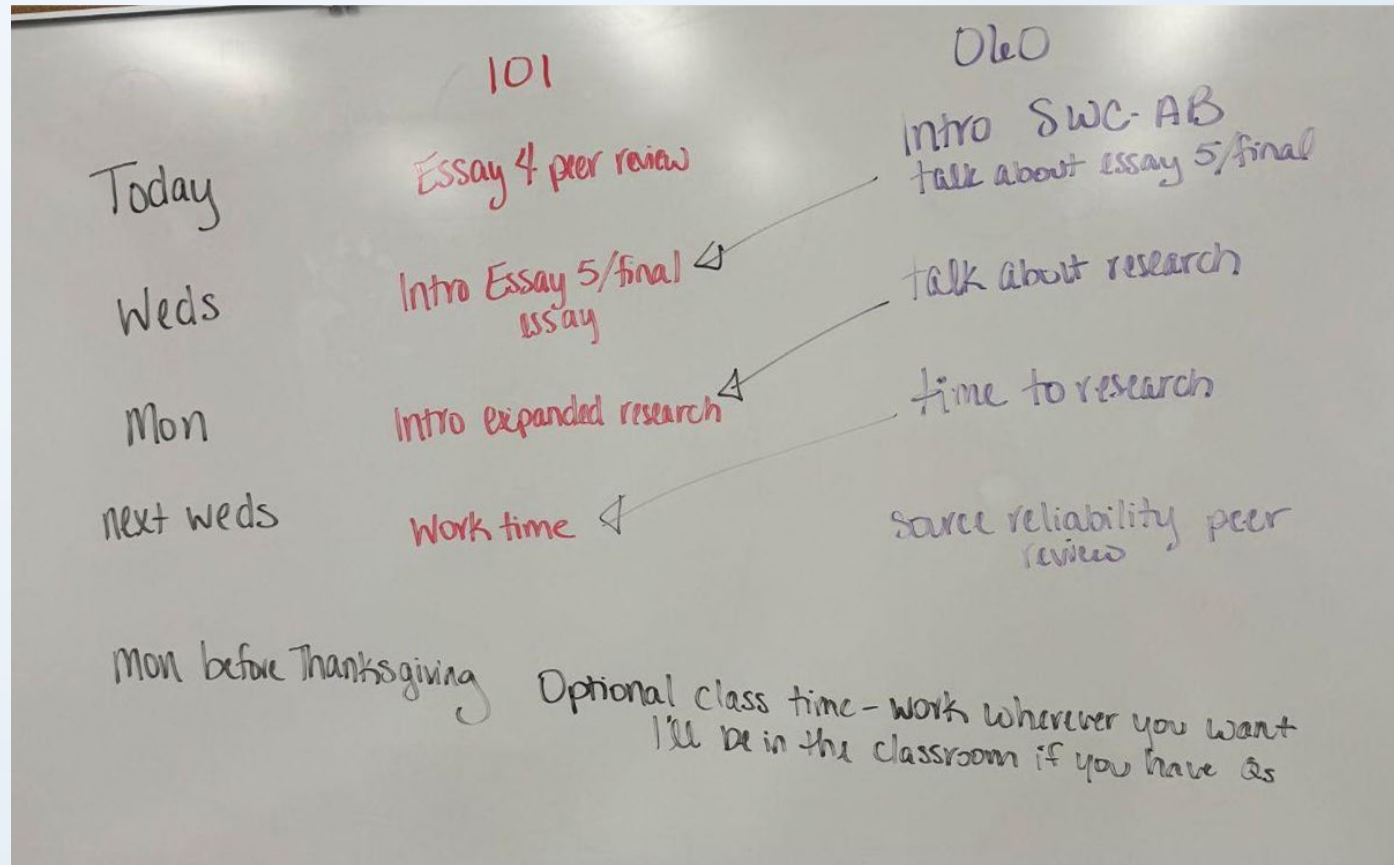 101
060
Today
Essay 4 peer review
Intro SWC-AB
talk about essay 5/final
Weds
Intro Essay 5/final
essay
talk about research
Mon
Intro expanded research
time to research
next weds
Work time
source reliability peer
review
Mon before Thanksgiving
Optional class time - work wherever you want
I'll be in the classroom if you have Qs